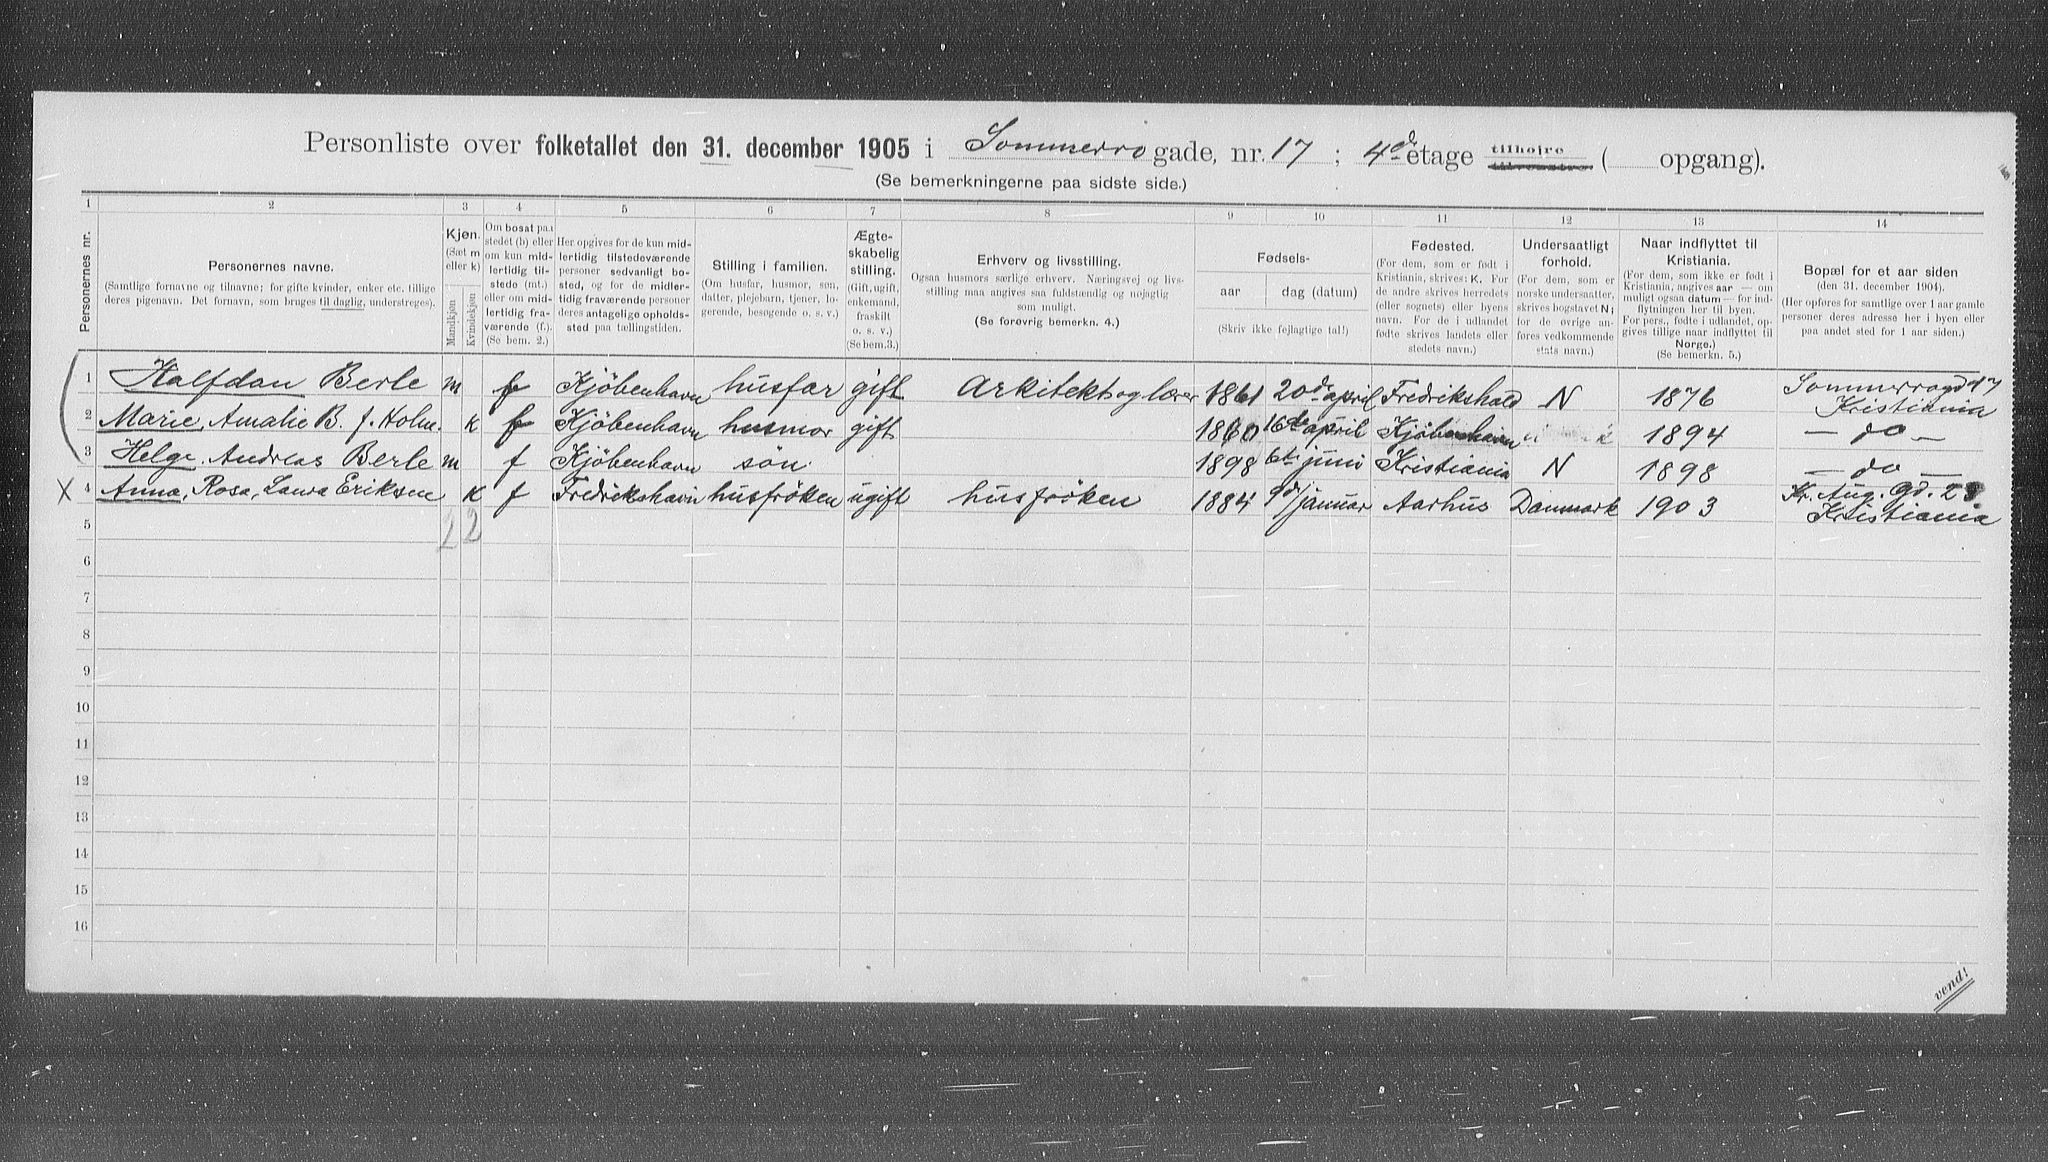 Personliste over folketallet den 31. december 1905 i Sommerro gade, nr. 17 ; 4d etage tilhøjre tilvenstre ( opgang).
(Se bemerkningerne paa sidste side.)
1 2 3 4 5 6 7 8 9 10 11 12 13 14
Personernes nr.
Personernes navne.
(Samtlige fornavne og tilnavne; for gifte kvinder, enker etc. tillige
deres pigenavn. Det fornavn, som bruges til daglig, understreges).
Kjøn.
(Sæt m
eller k)
Mandkjøn
Kvindekjøn
Om bosat paa
stedet (b) eller
om kun mid-
lertidig til-
stede (mt.)
eller om mid-
lertidig fra-
værende (f.).
(Se bem. 2.)
Her opgives for de kun mid-
lertidig tilstedeværende
personer sedvanligt bo-
sted, og for de midler-
tidig fraværende personer
deres antagelige opholds-
sted paa tællingstiden.
Stilling i familien.
(Om husfar, husmor, søn,
datter, plejebarn, tjener, lo-
gerende, besøgende o. s. v.)
Ægte-
skabelig
stilling.
(Gift, ugift,
enkemand,
fraskilt
o. s. v.)
(Se bem.3.)
Erhverv og livsstilling.
Ogsaa husmors særlige erhverv. Næringsvej og livs-
stilling maa angives saa fuldstændig og nøjagtig
som muligt.
(Se forøvrig bemerkn. 4.)
Fødsels-
aar dag (datum)
(Skriv ikke fejlagtige tal!)
Fødested.
(For dem, som er født i
Kristiania, skrives: K. For
de andre skrives herredets
(eller sognets) eller byens
navn. For de i udlandet
fødte skrives landets eller
stedets navn.)
Undersaatligt
forhold.
(For dem, som er
norske undersaatter,
skrives bogstavet N;
for de øvrige an-
føres vedkommende
stats navn.)
Naar indflyttet til
Kristiania.
(For dem, som ikke er født i
Kristiania, angives aar — om
muligt ogsaa datum — for ind-
flytningen her til byen.
For pers., fødte i udlandet, op-
gives tillige naar indflyttet til
Norge.)
(Se bemerkn. 5.)
Bopæl for et aar siden
(den 31. december 1904).
(Her opføres for samtlige over 1 aar gamle
personer deres adresse her i byen eller
paa andet sted for 1 aar siden.)
1 Halfdan Berle m f Kjöbenhavn husfar gift Arkitekt og lærer 1861 20de april Fredrikshald N 1876 Sommerrogd 17 Kristiania
2 Marie, Amalie B. f. Holm. k f Kjöbenhavn husmor gift 1860 16de april Kjöbenhavn 1894 — do —
3 Helge, Andreas Berle m f Kjöbenhavn sön 1898 6te juni Kristiania N 1898 — do —
X 4 Anna, Rosa, Laura Eriksen k f Fredrikshavn husfröken ugift husfröken 1884 9de januar Aarhus Danmark 1903 Kr. Aug. Gd. 28 Kristiania
5 2 2
6
7
8
9
10
11
12
13
14
15
16
vend!